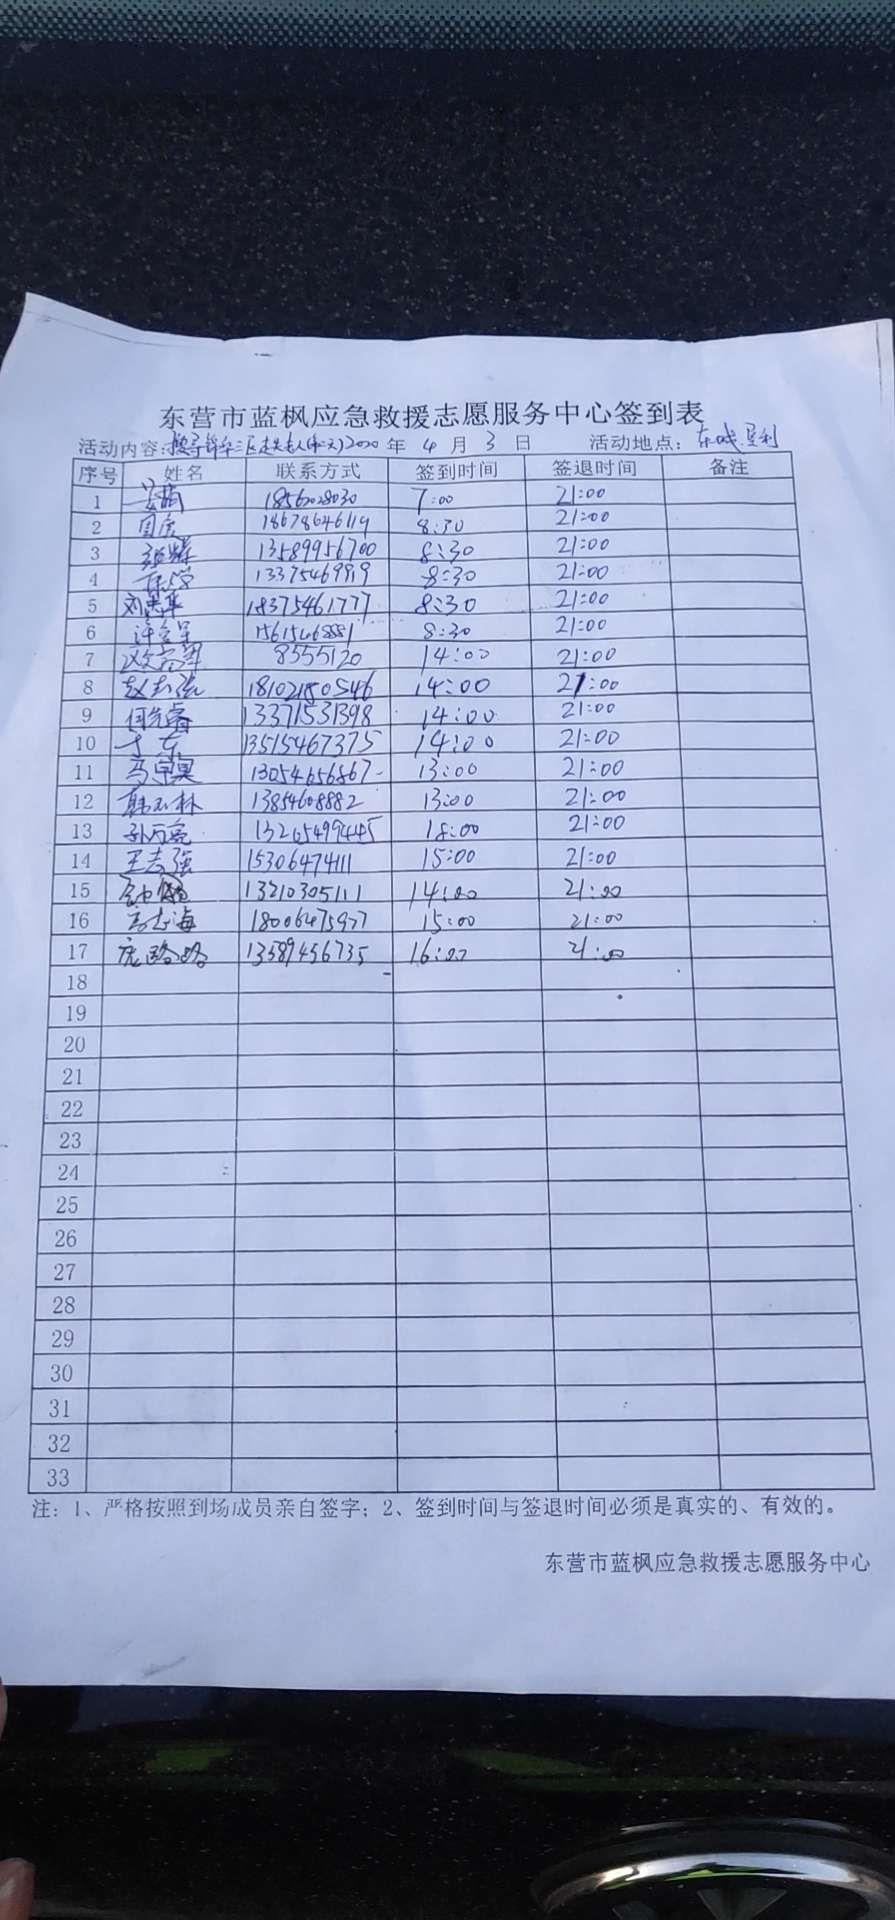 东营市蓝枫应急救援志愿服务中心签到表
活动内容:搜寻锦华三区走失老人(第一天)2020 年 4 月 3 日 活动地点:东城.垦利
序号 姓名 联系方式 签到时间 签退时间 备注
1 7:00 21:00
2 国庆 18678646119 8:30 21:00
3 13589956700 8:30 21:00
4 13375469919 8:30 21:00
5 18375461777 8:30 21:00
6 15615468881 8:30 21:00
7 8555120 14:00 21:00
8 赵志强 18102180546 14:00 21:00
9 13371531398 14:00 21:00
10 于东 13515467375 14:00 21:00
11 13054656867 13:00 21:00
12 韩玉林 13854608882 13:00 21:00
13 孙万亮 13265499445 18:00 21:00
14 王志强 15306474111 15:00 21:00
15 13210305111 14:00 21:00
16 高志海 18006475977 15:00 21:00
17 庞路路 13589456735 16:00 21:00
18
19
20
21
22
23
24
25
26
27
28
29
30
31
32
33
注: 1、严格按照到场成员亲自签字; 2、签到时间与签退时间必须是真实的、有效的。
东营市蓝枫应急救援志愿服务中心